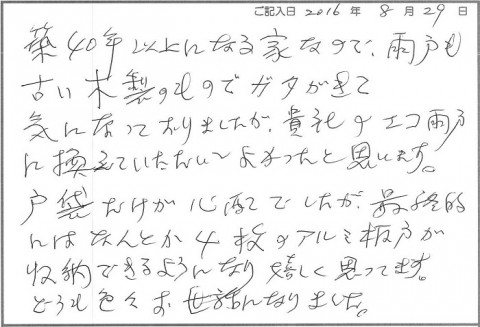 ご記入日 2016 年 8 月 29 日
築40年以上になる家なので、雨戸も
古い木製のものでガタがきて
気になっておりましたが、貴社のエコ雨戸
に換えていただいてよかったと思います。
戸袋だけが心配でしたが、最終的
にはなんとか4枚のアルミ板戸が
収納できるようになり嬉しく思ってます。
どうも色々お世話になりました。